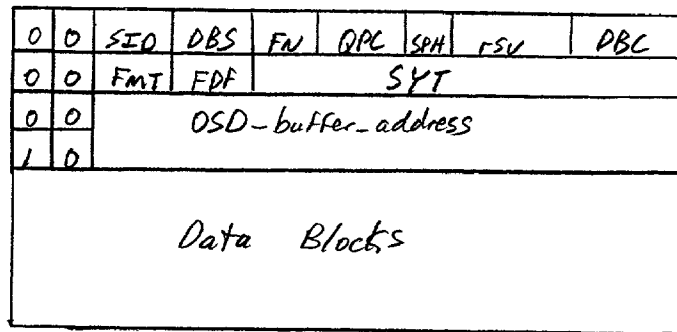 0 0 SID DBS FN QPC SPH rsv DBC
0 0 FMT FDF SYT
0 0 OSD-buffer-address
1 0
Data Blocks